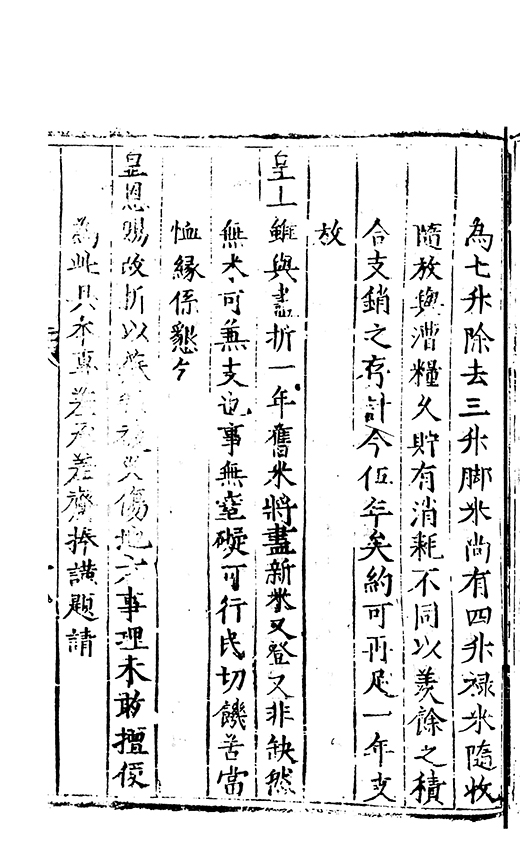 為七升除去三升脚米尚有四升祿米隨收
隨放與漕糧久貯有消耗不同以羨餘之積
合支銷之存計今伍年矣約可再足一年支
放
皇上雖與盡折一年舊米將盡新米又登又非缺然
無米可兼支也事無窒礙可行民切饑苦當
恤緣係懇今
皇恩賜改折以災傷地方事理未敢擅便
為此具本專差承差齎捧謹題請